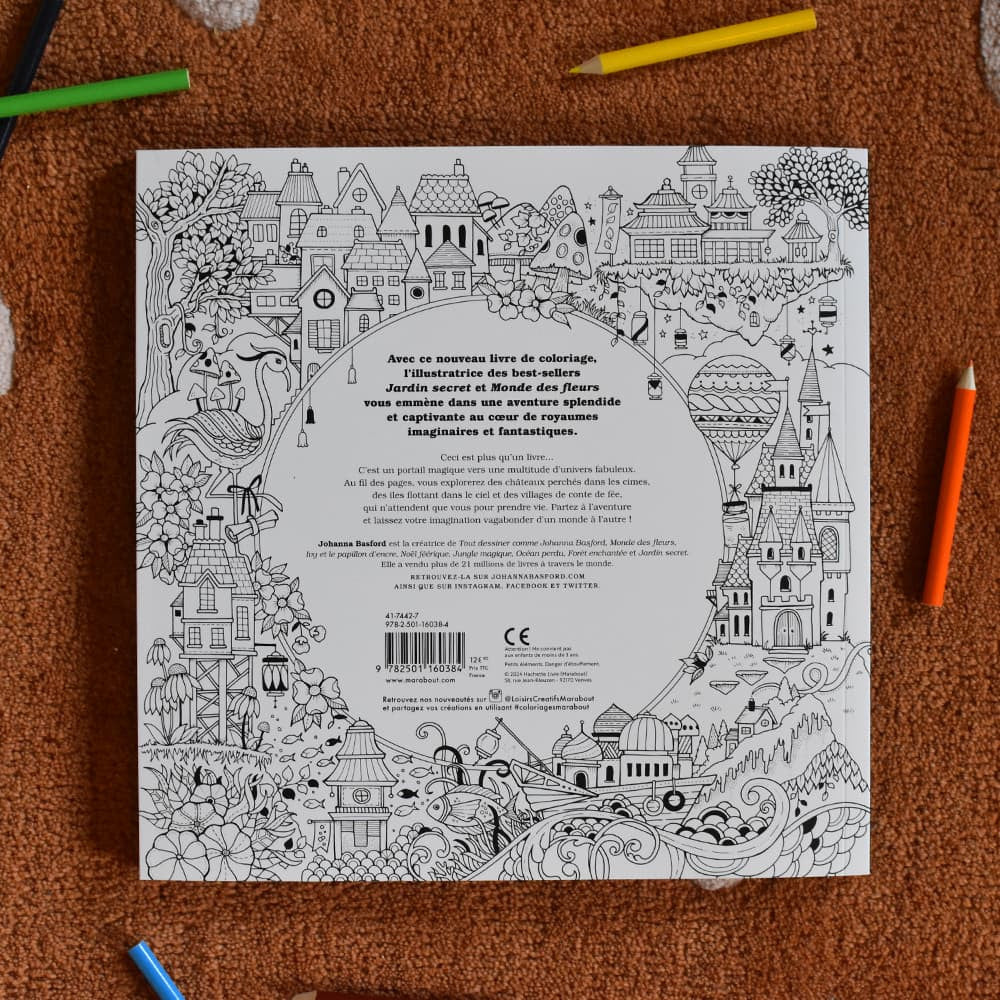 Avec ce nouveau livre de coloriage,
l'illustratrice des best-sellers
Jardin secret et Monde des fleurs
vous emmène dans une aventure splendide
et captivante au cœur de royaumes
imaginaires et fantastiques.
Ceci est plus qu'un livre...
C'est un portail magique vers une multitude d'univers fabuleux.
Au fil des pages, vous explorerez des châteaux perchés dans les cimes,
des îles flottant dans le ciel et des villages de conte de fée,
qui n'attendent que vous pour prendre vie. Partez à l'aventure
et laissez votre imagination vagabonder d'un monde à l'autre !
Johanna Basford est la créatrice de Tout dessiner comme Johanna Basford, Monde des fleurs,
Ivy et le papillon d'encre, Noël féérique, Jungle magique, Océan perdu, Forêt enchantée et Jardin secret.
Elle a vendu plus de 21 millions de livres à travers le monde.
RETROUVEZ-LA SUR JOHANNABASFORD.COM
AINSI QUE SUR INSTAGRAM, FACEBOOK ET TWITTER.
41-7442-7
978-2-501-16038-4
9 782501 160384
12€90
Prix TTC
France
www.marabout.com
CE
Attention ! Ne convient pas
aux enfants de moins de 3 ans.
Petits éléments. Danger d'étouffement.
© 2024 Hachette Livre (Marabout)
58, rue Jean-Bleuzen - 92170 Vanves
Retrouvez nos nouveautés sur @LoisirsCreatifsMarabout
et partagez vos créations en utilisant #coloriagesmarabout